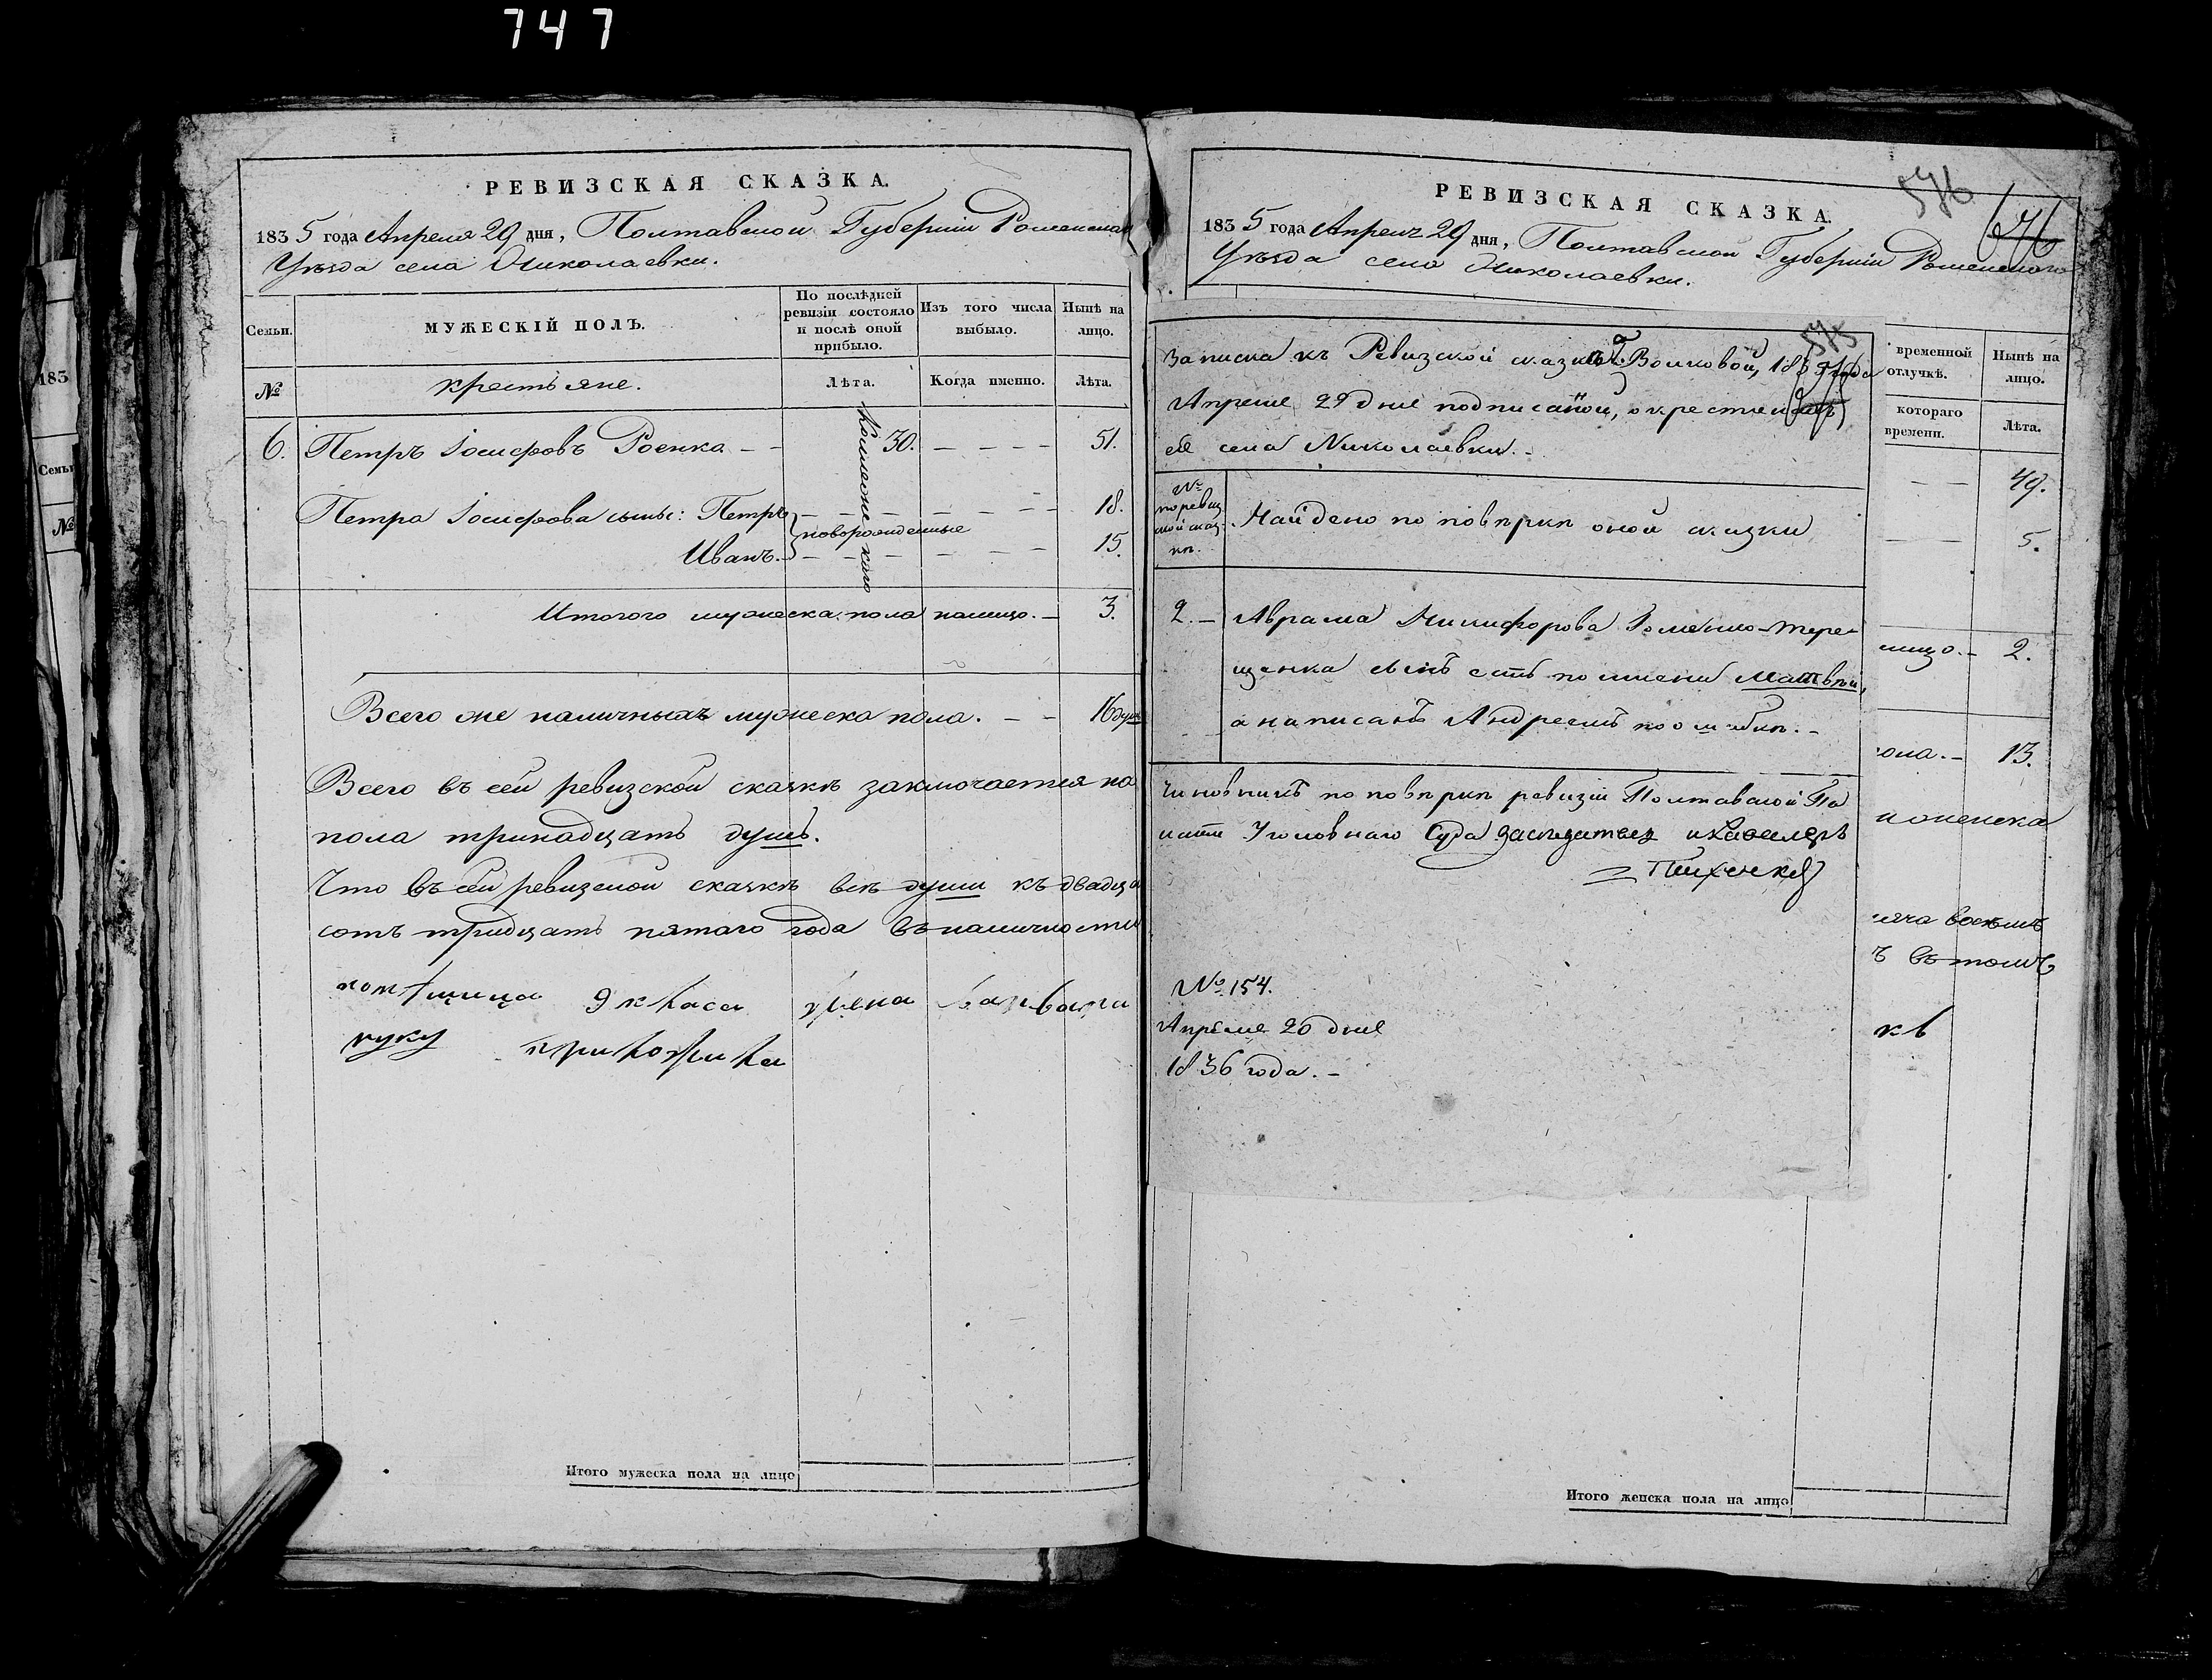 747
РЕВИЗСКАЯ СКАЗКА.
1835 года Апреля 29 дня, Полтавской Губернiи Роменскаго
Уѣзда села Николаевки.
Семьи.
МУЖЕСКІЙ ПОЛЪ.
По послѣдней ревизіи состояло и послѣ оной прибыло.
Изъ того числа выбыло.
Нынѣ на лицо.
№
крестьяне.
Лѣта.
Когда именно.
Лѣта.
6. Петръ Іосифовъ Роенко 30. 51.
Петра Іосифова сыны: Петръ новорожденные 18.
Иванъ. 15.
Итого мужеска пола налицо. 3.
Всего же наличныхъ мужеска пола. 16 душъ
Всего въ сей ревизской сказкѣ заключается на
пола тринадцать душъ.
Что въ сей ревизской сказкѣ всѣ души къ двадца
сотъ тридцать пятаго года въ наличности
9 класа жена Варвара
руку приложила
Итого мужеска пола на лицо
РЕВИЗСКАЯ СКАЗКА.
576
1835 года Апреля 29 дня, Полтавской Губерніи Роменскаго
Уѣзда села Николаевки.
575
Записка къ Ревизской сказкѣ Волковой, 1835 года
Апреля 29 дня подписаной, о крестьянахъ
ее села Николаевки.
№ по ревизской сказкѣ.
Найдено по повѣркѣ оной сказки
2. Аврама Никифорова Роменко-Тере-
щенка сынъ есть по имени Матвѣй,
а написанъ Андреемъ по ошибкѣ.
Чиновникъ по повѣркѣ ревизіи Полтавской Па
латы Уголовнаго Суда заседатель и Кавалеръ
№ 154.
Апреля 20 дня
1836 года.
временной отлучкѣ.
Нынѣ на лицо.
котораго времени.
Лѣта.
49.
5.
лицо. 2.
ола. 13.
и женска
сяча восемь
ъ въ томъ
ква
Итого женска пола на лицо